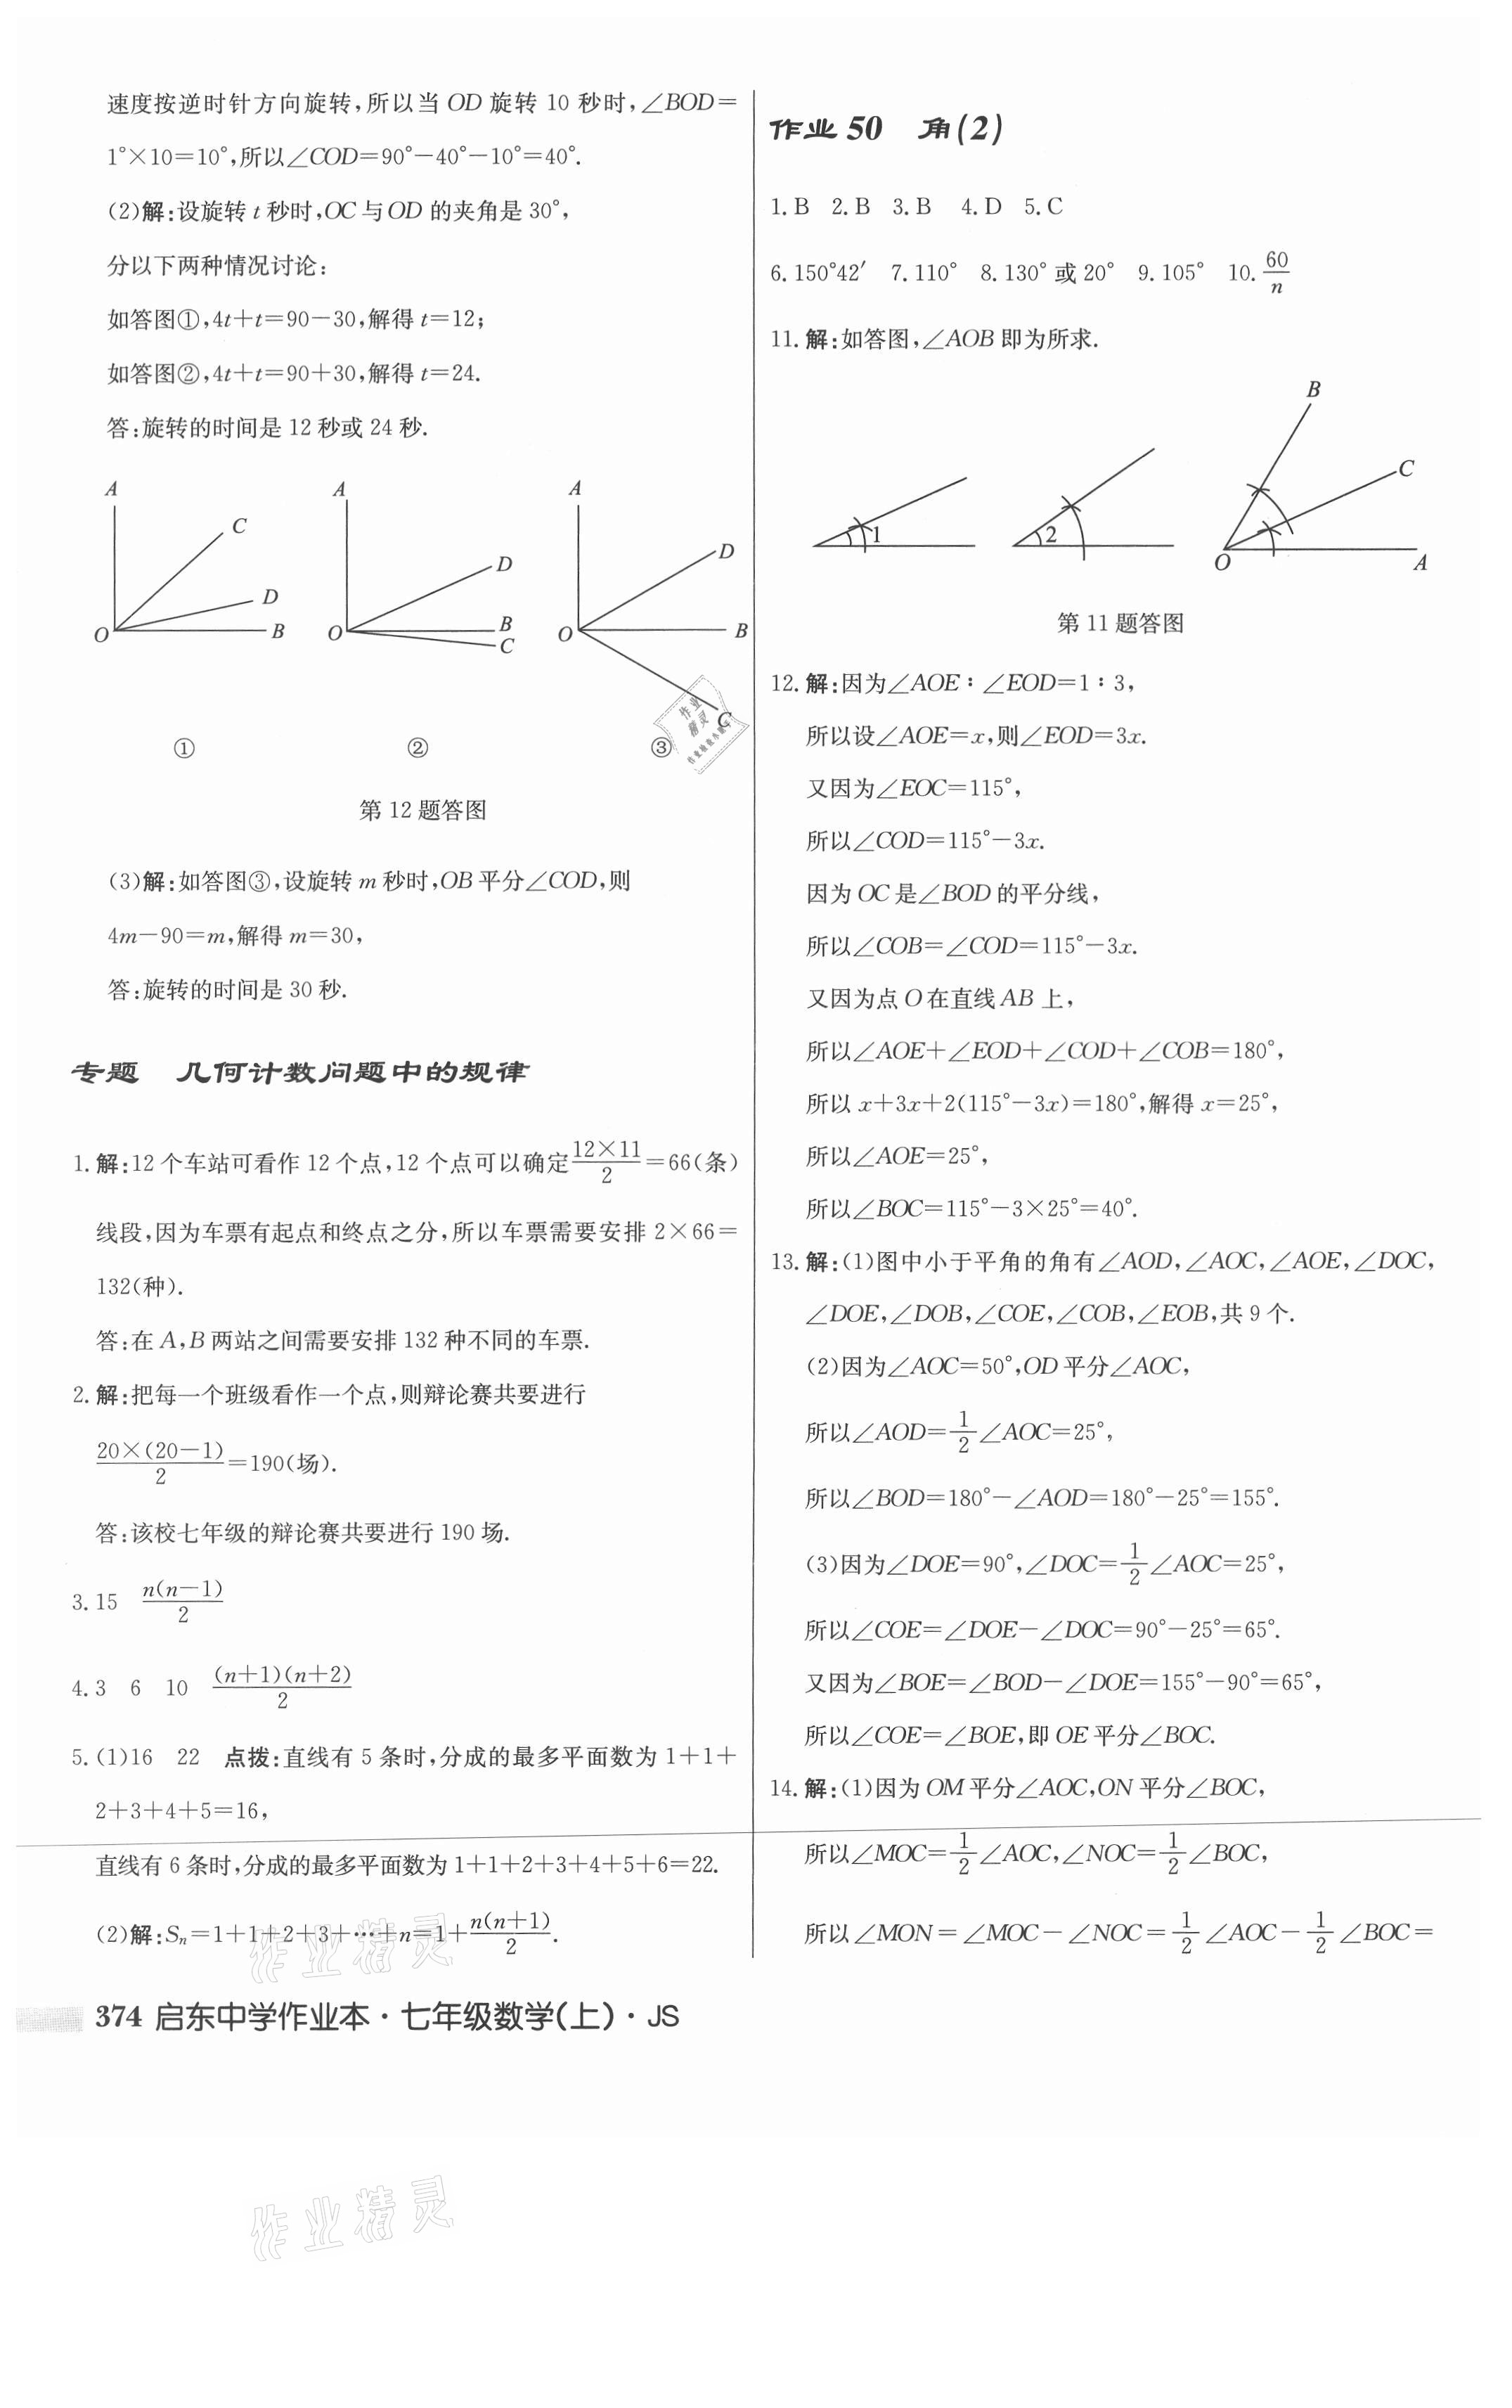 速度按逆时针方向旋转,所以当 OD 旋转 10 秒时,∠BOD=
1°×10=10°,所以∠COD=90°-40°-10°=40°.
(2)解:设旋转 t 秒时,OC 与 OD 的夹角是 30°,
分以下两种情况讨论:
如答图①,4t+t=90-30,解得 t=12;
如答图②,4t+t=90+30,解得 t=24.
答:旋转的时间是 12 秒或 24 秒.
A C D O B
A D O B C
A D O B C
① ② ③
第 12 题答图
(3)解:如答图③,设旋转 m 秒时,OB 平分∠COD,则
4m-90=m,解得 m=30,
答:旋转的时间是 30 秒.
专题 几何计数问题中的规律
1. 解:12 个车站可看作 12 个点,12 个点可以确定\frac{12×11}{2}=66(条)
线段,因为车票有起点和终点之分,所以车票需要安排 2×66=
132(种).
答:在 A,B 两站之间需要安排 132 种不同的车票.
2. 解:把每一个班级看作一个点,则辩论赛共要进行
\frac{20×(20-1)}{2}=190(场).
答:该校七年级的辩论赛共要进行 190 场.
3. 15 \frac{n(n-1)}{2}
4. 3 6 10 \frac{(n+1)(n+2)}{2}
5. (1)16 22 点拨:直线有 5 条时,分成的最多平面数为 1+1+
2+3+4+5=16,
直线有 6 条时,分成的最多平面数为 1+1+2+3+4+5+6=22.
(2)解:Sₙ=1+1+2+3+…+n=1+\frac{n(n+1)}{2}.
作业 50 角(2)
1. B 2. B 3. B 4. D 5. C
6. 150°42′ 7. 110° 8. 130° 或 20° 9. 105° 10. \frac{60}{n}
11. 解:如答图,∠AOB 即为所求.
1
2
B C O A
第 11 题答图
12. 解:因为∠AOE∶∠EOD=1∶3,
所以设∠AOE=x,则∠EOD=3x.
又因为∠EOC=115°,
所以∠COD=115°-3x.
因为 OC 是∠BOD 的平分线,
所以∠COB=∠COD=115°-3x.
又因为点 O 在直线 AB 上,
所以∠AOE+∠EOD+∠COD+∠COB=180°,
所以 x+3x+2(115°-3x)=180°,解得 x=25°,
所以∠AOE=25°,
所以∠BOC=115°-3×25°=40°.
13. 解:(1)图中小于平角的角有∠AOD,∠AOC,∠AOE,∠DOC,
∠DOE,∠DOB,∠COE,∠COB,∠EOB,共 9 个.
(2)因为∠AOC=50°,OD 平分∠AOC,
所以∠AOD=\frac{1}{2}∠AOC=25°,
所以∠BOD=180°-∠AOD=180°-25°=155°.
(3)因为∠DOE=90°,∠DOC=\frac{1}{2}∠AOC=25°,
所以∠COE=∠DOE-∠DOC=90°-25°=65°.
又因为∠BOE=∠BOD-∠DOE=155°-90°=65°,
所以∠COE=∠BOE,即 OE 平分∠BOC.
14. 解:(1)因为 OM 平分∠AOC,ON 平分∠BOC,
所以∠MOC=\frac{1}{2}∠AOC,∠NOC=\frac{1}{2}∠BOC,
所以∠MON=∠MOC-∠NOC=\frac{1}{2}∠AOC-\frac{1}{2}∠BOC=
374 启东中学作业本·七年级数学(上)·JS
作业精灵
作业精灵
作业精灵